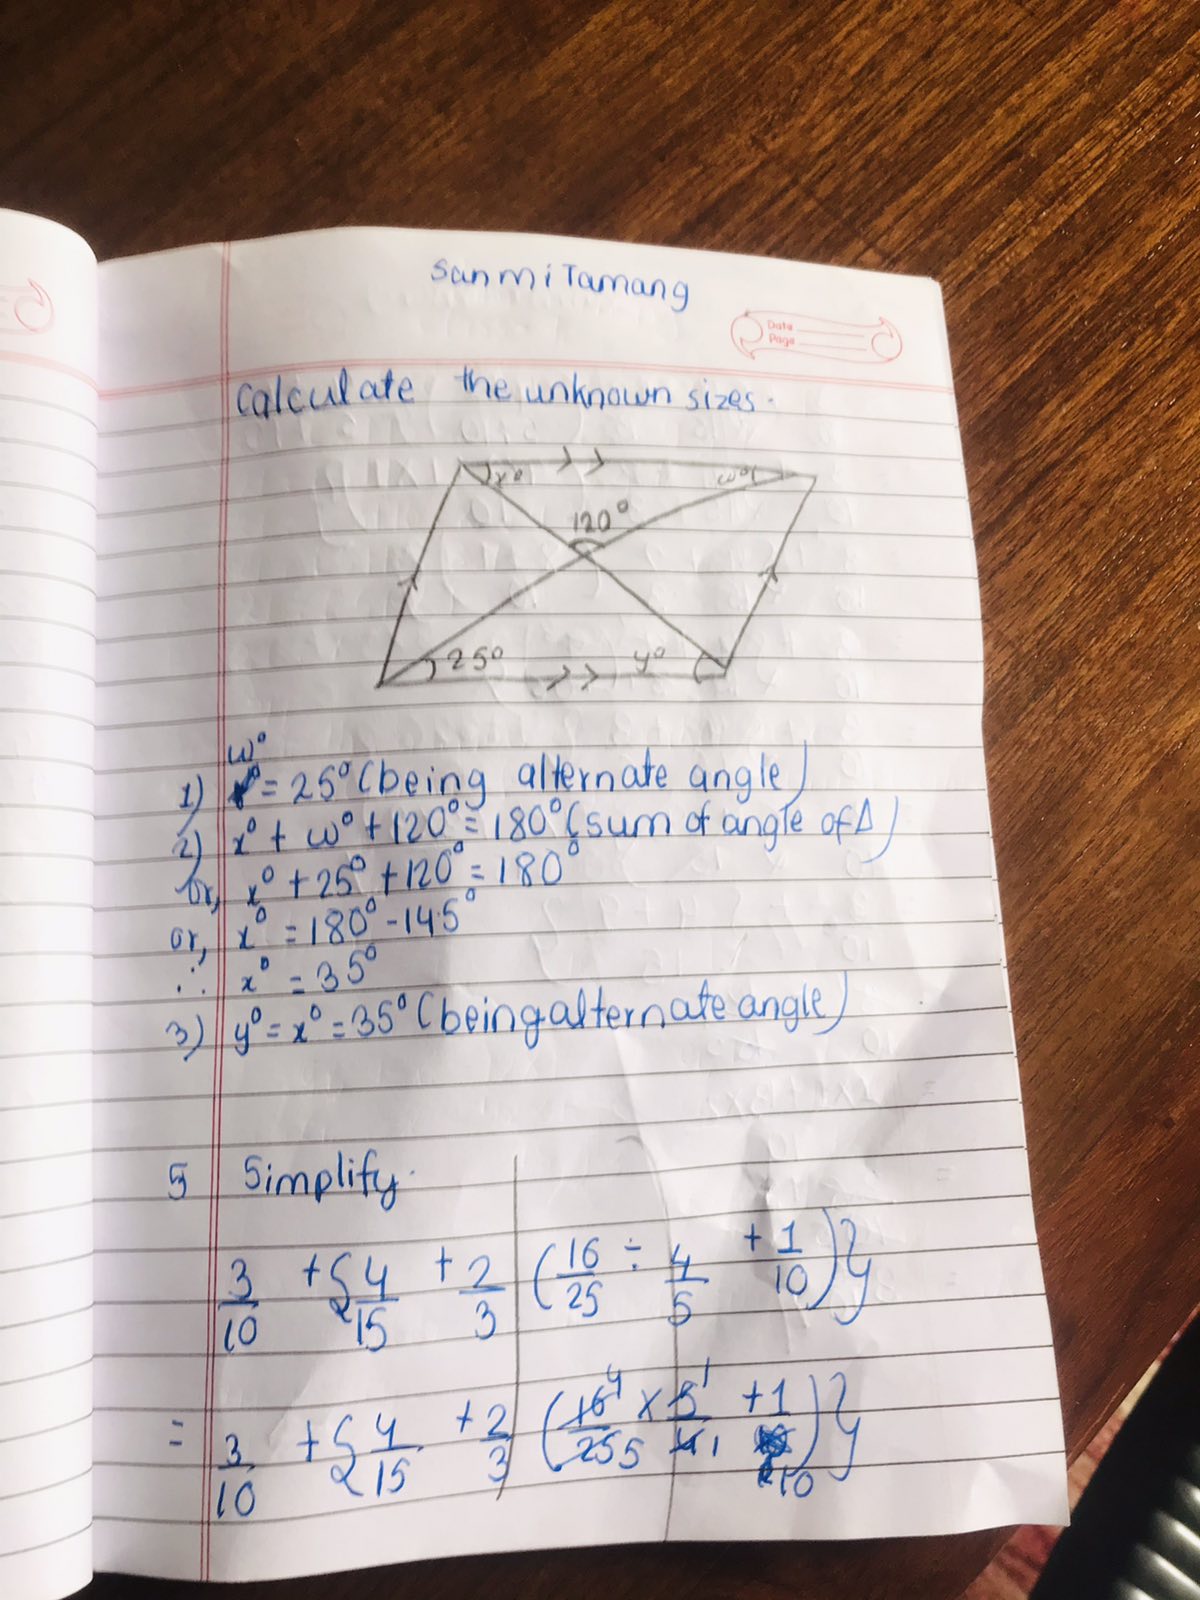 Sanmi Tamang
Date
Page
Calculate the unknown sizes.
x° w°
120°
25° y°
w°
1) x° = 25° (being alternate angle)
2) x° + w° + 120° = 180° (sum of angle of Δ)
or, x° + 25° + 120° = 180°
or, x° = 180° - 145°
∴ x° = 35°
3) y° = x° = 35° (being alternate angle)
5 Simplify.
3/10 + {4/15 + 2/3 (16/25 ÷ 4/5 + 1/10)}
= 3/10 + {4/15 + 2/3 (16 4/25 5 × 5 1/4 1 + 1/10)}